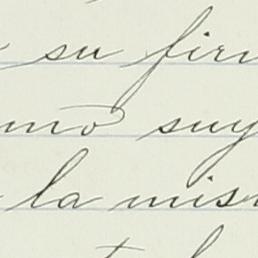 su fir
mo suy
la mis